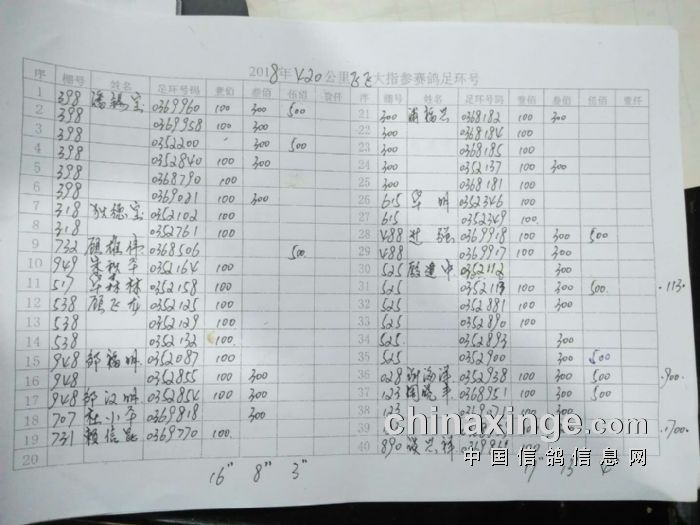 2018年420公里飞飞大指参赛鸽足环号
序 棚号 姓名 足环号码 壹佰 叁佰 伍佰 壹仟 序 棚号 姓名 足环号码 壹佰 叁佰 伍佰 壹仟
1 398 潘锡宝 0369960 100 300 500 21 300 浦福兴 0368182 100 300
2 398 0369958 100 300 22 300 0368184 100
3 398 0352200 300 500 23 300 0368185 100
4 398 0352840 100 300 24 300 0352137 100 300
5 398 0368790 100 25 300 0368181 100
6 398 0369021 100 300 26 615 0352346 100
7 318 狄德宝 0352102 100 27 615 0352349 100
8 318 0352761 100 28 488 0369918 100 300 500
9 732 顾雄伟 0368506 500 29 488 0369917 100 300
10 949 0352164 100 30 525 殷建中 0352112 300
11 517 0352158 100 31 525 100 300 500 113
12 538 顾飞龙 0352125 100 32 525 0352881 100 300
13 538 0352129 100 33 525 0352890 100
14 538 0352132 100 34 525 0352893 300
15 948 邹福明 0352087 100 35 525 0352900 300 500
16 948 0352855 100 300 36 028 0352938 100 300 500 900
17 948 邹汉明 0352854 100 300 37 123 0368951 100 300 500
18 707 杜小平 0369818 300 38 123
19 731 0369770 100 39 1700
20 40 890 100
16" 8" 3" 13 4
chinaxinge.com
中国信鸽信息网